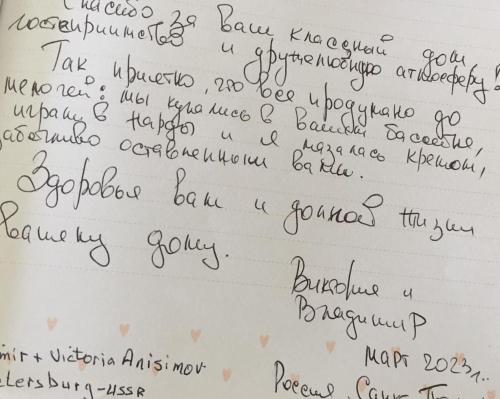 Спасибо за Ваш классный дом,
гостеприимство и дружелюбную атмосферу!
Так приятно, что все продумано до
мелочей: мы купались в вашем бассейне,
играли в нарды и я мазалась кремом,
заботливо оставленным вами.
Здоровья вам и долгой жизни
вашему дому.
Виктория и
Владимир
март 2023 г..
mir + Victoria Anisimov
etersburg - USSR
Россия, Санкт